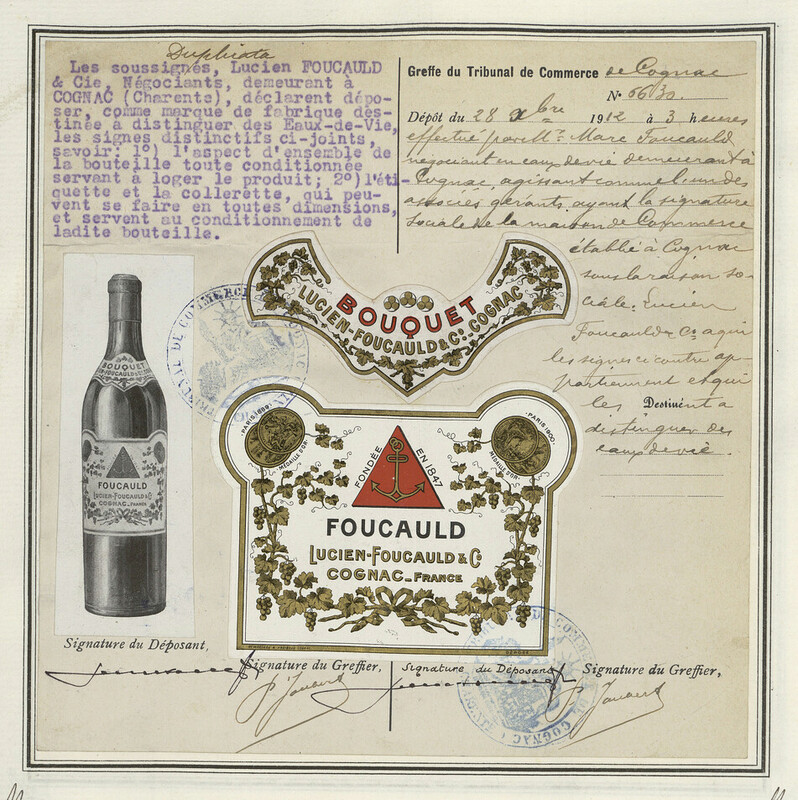 Duplicata
Les soussignés, Lucien FOUCAULD
& Cie, Négociants, demeurant à
COGNAC (Charente), déclarent dépo-
ser, comme marque de fabrique des-
tinée à distinguer des Eaux-de-Vie,
les signes distinctifs ci-joints,
savoir: 1º) l'aspect d'ensemble de
la bouteille toute conditionnée
servant à loger le produit; 2º) l'éti-
quette et la collerette, qui peu-
vent se faire en toutes dimensions,
et servent au conditionnement de
ladite bouteille.
Greffe du Tribunal de Commerce de Cognac
Nº 6630.
Dépôt du 28 Xbre 1912 à 3 heures
effectué par Mr. Marc Foucauld
négociant en eaux de vie demeurant à
Cognac, agissant comme l'un des
associés gérants ayant la signature
sociale de la maison de Commerce
établie à Cognac
sous la raison so-
ciale: Lucien
Foucauld & Cº a qui
les signes ci contre ap-
partiennent et qui
les Destinent a
distinguer des
eaux de vie.
BOUQUET
LUCIEN-FOUCAULD & Cº COGNAC
BOUQUET
LUCIEN-FOUCAULD & Cº
FOUCAULD
LUCIEN-FOUCAULD & Cº
COGNAC-FRANCE
TRIBUNAL DE COMMERCE
PARIS 1889
MÉDAILLE D'OR
PARIS 1900
MÉDAILLE D'OR
FONDÉE EN 1847
FOUCAULD
LUCIEN-FOUCAULD & Cº
COGNAC_FRANCE
Signature du Déposant,
Signature du Greffier,
Signature du Déposant
Signature du Greffier,
P. Jouard
P. Jouard